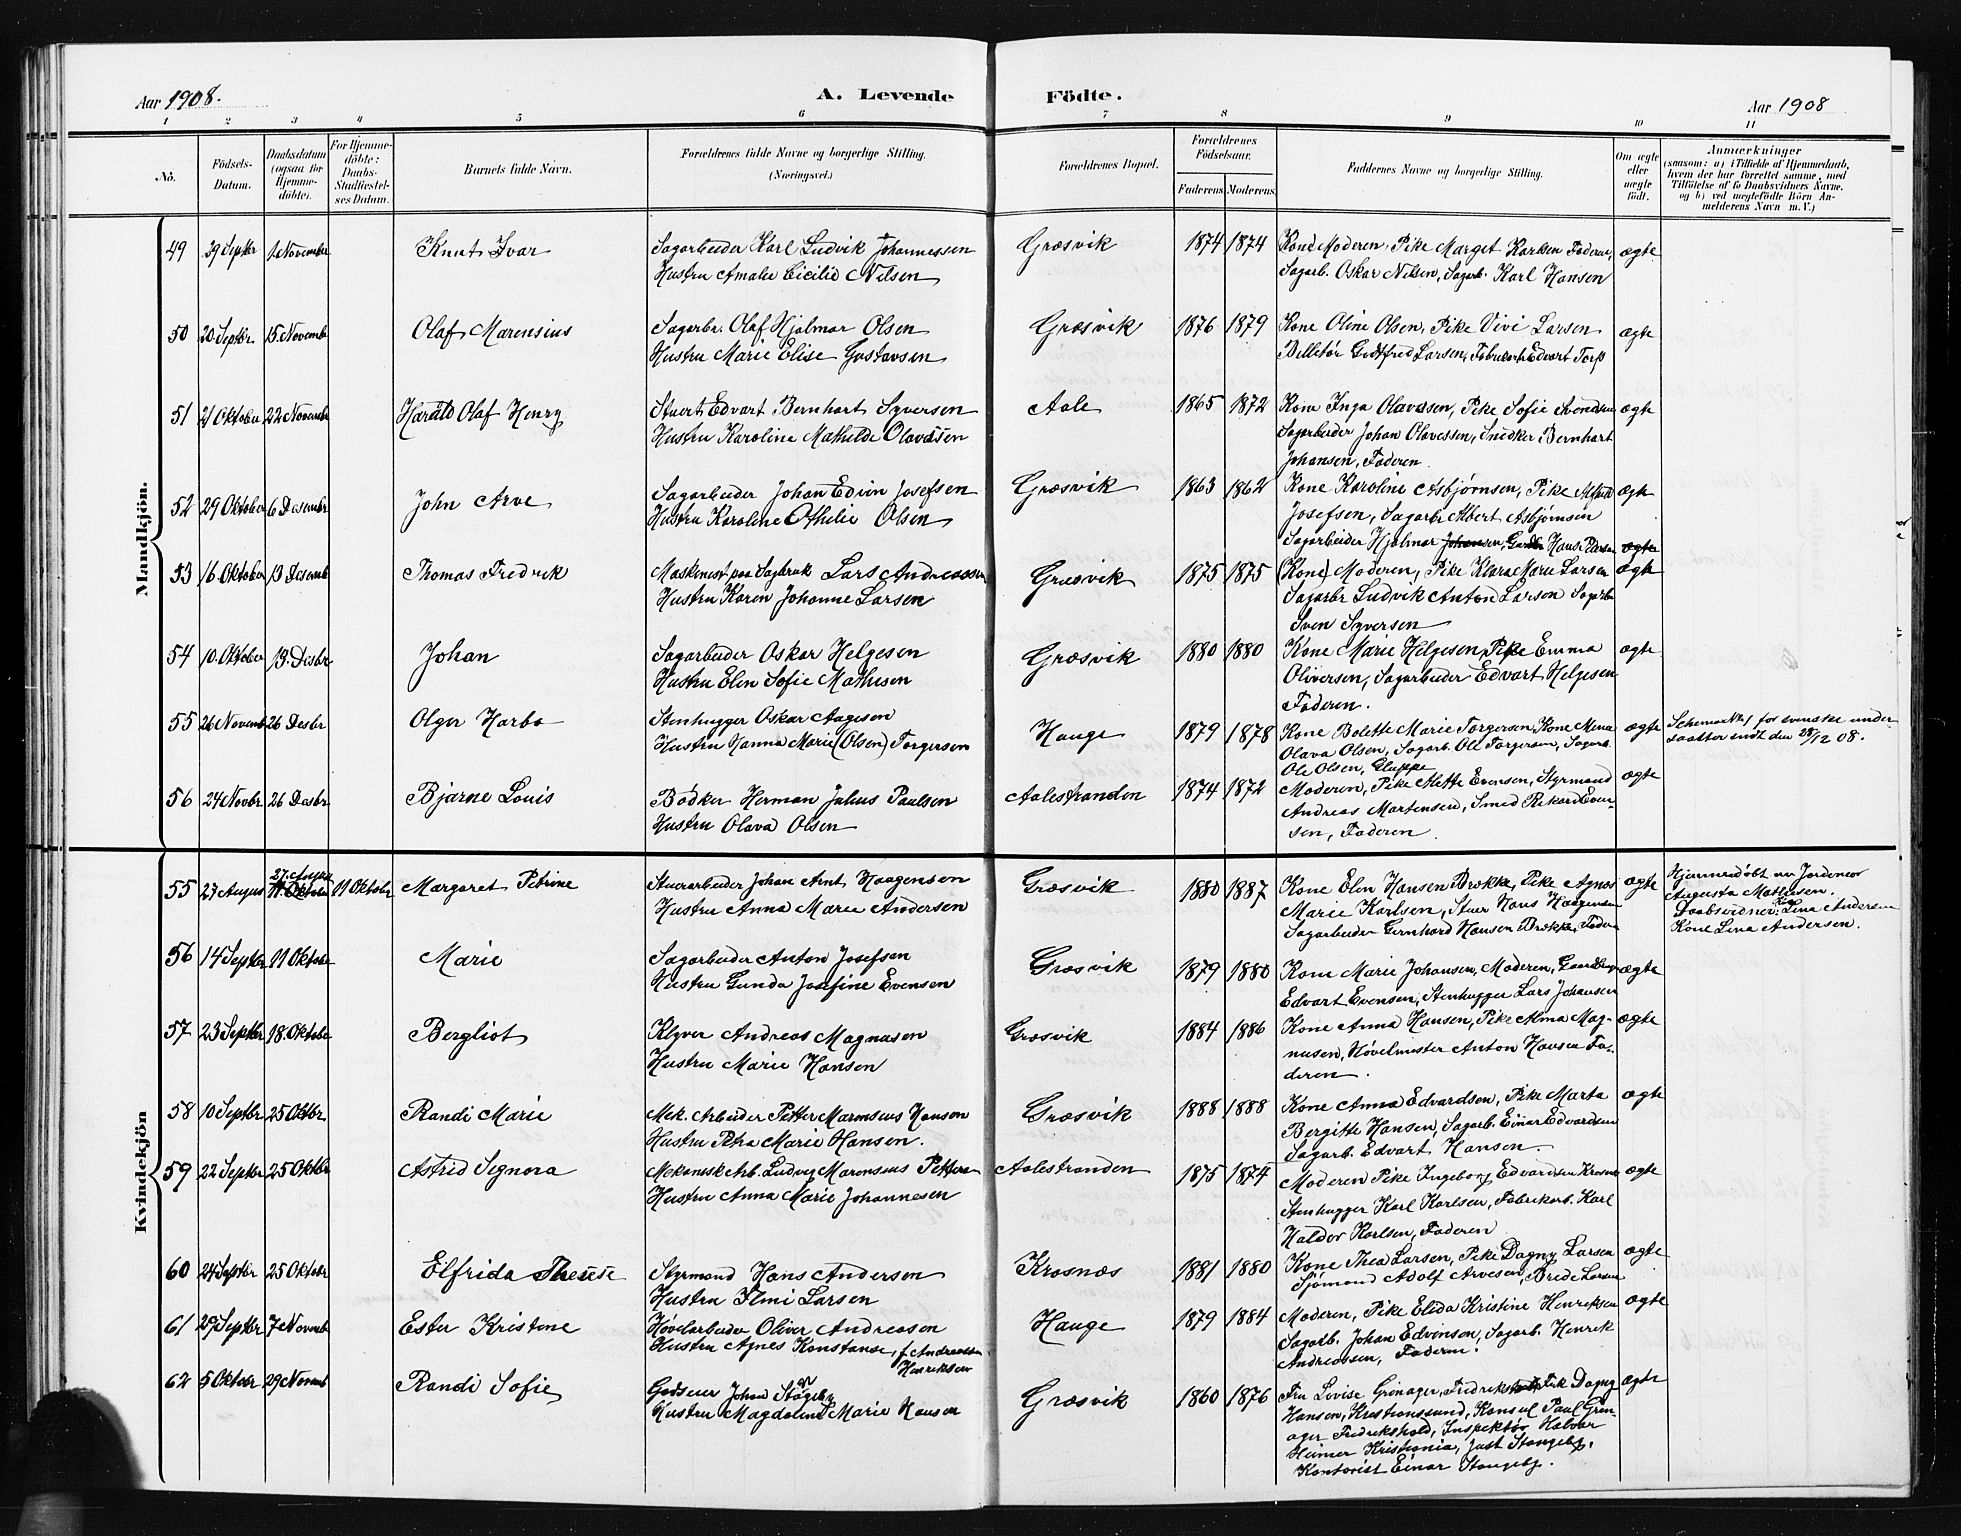 Aar 1908. A. Levende Födte. Aar 1908
1 2 3 4 5 6 7 8 9 10 11
Nö. Födsels-Datum. Daabsdatum (ogsaa for Hjemme-döbte). For Hjemme-döbte: Daabs-Stadfæstel-ses Datum. Barnets fulde Navn. Forældrenes fulde Navne og borgerlige Stilling. (Næringsvei.) Forældrenes Bopæl. Forældrenes Födselsaar. Faderens Moderens. Faddernes Navne og borgerlige Stilling. Om ægte eller uægte födt. Anmærkninger
(saasom: a) i Tilfælde af Hjemmedaab,
hvem der har forrettet samme, med
Tilföielse af to Daabsvidners Navne.
og b) ved uægtefödte Börn An-
melderens Navn m. V.)
Mandkjön.
49 29 Septbr 1 November Knut Ivar Sagarbeider Karl Ludvik Johannessen Græsvik 1874 1874 Kone Moderen, Pike Marget Karlsen Faderen, ægte
Hustru Amalie Cicilie Nilsen Sagarb. Oskar Nilsen, Sagarb. Karl Hansen
50 20 Septbr. 15 Novemb Olaf Marensius Sagarbr. Olaf Hjalmar Olsen Græsvik 1876 1879 Kone Oline Olsen, Pike Vivi Larsen ægte
Hustru Marie Elise Gustavsen Billetör Gottfred Larsen, Fabrikarb Edvart Torp
51 21 Oktober 22 Novembr Harald Olaf Henry Stuert Edvart Bernhart Syversen Aale 1865 1872 Kone Inga Olavesen, Pike Sofie Svendsen ægte
Hustru Karoline Mathilde Olavesen Sagarbeider Johan Olavessen, Snedker Bernhart
Johansen, Faderen.
52 29 Oktober 6 Desembr John Arve Sagarbeider Johan Edvin Josefsen Græsvik 1863 1862 Kone Karoline Asbjørnsen, Pike ægte
Hustru Karoline Othilie Olsen Josefsen, Sagarbr Albert Asbjørnsen
Sagarbeider Hjalmar Johansen, Hans Petersen ægte
53 16 Oktober 13 Desemb Thomas Fredrik Maskinist paa Sagbruk Lars Andreassen Græsvik 1875 1875 (Kone) Moderen, Pike Klara Marie Larsen ægte
Hustru Karen Johanne Larsen Sagarbr Ludvik Anton Larsen Sagarb.
Sven Syversen
54 10. Oktober 13. Desbr Johan Sagarbeider Oskar Helgesen Græsvik 1880 1880 Kone Marie Helgesen, Pike Emma ægte
Hustru Elen Sofie Mathisen Oliversen, Sagarbeider Edvart Helgesen
Faderen.
55 26 Novemb 26 Desbr Olger Harbo Stenhugger Oskar Aagesen Hauge 1879 1878 Kone Bolette Marie Torgersen, Kone Mina ægte Schema No 1 for svenske under
Hustru Hanna Marie (Olsen) Torgersen Olava Olsen, Sagarb. Ole Torgersen, Sagarb. saatter indt den 28/12 08.
Ole Olsen, Gluppe
56 24 Novbr. 26 Desbr Bjarne Louis Bødker Herman Julius Paulsen Aalestranden 1874 1872 Moderen, Pike Alette Evensen, Styrmand ægte
Hustru Olava Olsen Andreas Martensen, Smed Rikard Even-
sen, Faderen.
Kvindekjön
55 27 August 27. August 11 Oktober 11 Oktober Margaret Petrine Stuerarbeider Johan Arnt Haagensen Græsvik 1880 1887 Kone Elen Hansen Brokke, Pike Agnes ægte Hjemmedøbt av Jordemor
Hustru Anna Marie Andersen Marie Karlsen, Stuer Hans Haagensen Augusta Mathisen.
Sagarbeider Gernhard Hansen Brokke, Fader Daabsvidner: Lina Andersen
Kone Lina Andersen.
56 14 Septbr 11 Oktober Marie Sagarbeider Anton Josefsen Græsvik 1879 1880 Kone Marie Johansen, Moderen, ægte
Hustru Gunda Josefine Evensen Edvart Evensen, Stenhugger Lars Johansen
57 23 Septbr 18. Oktober Bergliot Klyver Andreas Magnusen Græsvik 1884 1886 Kone Anna Hansen, Pike Alma Mag- ægte
Hustru Marie Hansen nusen, Høvelmester Anton Hansen Fa-
deren.
58 10 Septbr 25 Oktbr. Randi Marie Mek. Arbeider Petter Marensius Hansen Græsvik 1888 1888 Kone Anna Edvardsen, Pike Marta ægte
Hustru Petra Marie Hansen. Bergitte Hansen, Sagarb. Einar Edvardsen
Sagarb. Edvart Hansen.
59 22 Septbr 25 Oktbr Astrid Segnora Mekanisk Arb. Ludvig Marensius Petters Aalestranden 1875 1874 Moderen Pike Ingeborg Edvardsen Krosnes ægte
Hustru Anna Marie Johannesen Stenhugger Karl Karlsen, Fabrikarb. Karl
Haldor Karlsen, Faderen
60 24 Septbr 25 Oktobr Elfrida Therese Styrmand Hans Andersen Krosnæs 1881 1880 Kone Thea Larsen, Pike Dagny Larsen ægte
Hustru Ilmi Larsen Sjømand Adolf Arvesen, Brede Larsen
61 29 Septbr 7 Novemb Ester Kristine Høvelarbeider Oliver Andreasen Hauge 1879 1884 Moderen, Pike Elida Kristine Henriksen ægte
Hustru Agnes Konstanse, f. Andreassen Henriksen Sagarb. Johan Edvinson, Sagarb. Henrik
Andreassen, Faderen.
62 5 Oktobr 29 Novemb Randi Sofie Godseier Johan Stangeby Græsvik 1860 1876 Fru Lovise Grinager, Fredrikshald, Frk Dagny ægte
Hustru Magdaline Marie Hansen Hansen, Kristianssund, Konsul Paul Grin-
ager Fredrikshald, Inspektør Halvar
Heimer Kristiania, Just Stangeby,
Kontorist Einar Stangeby.